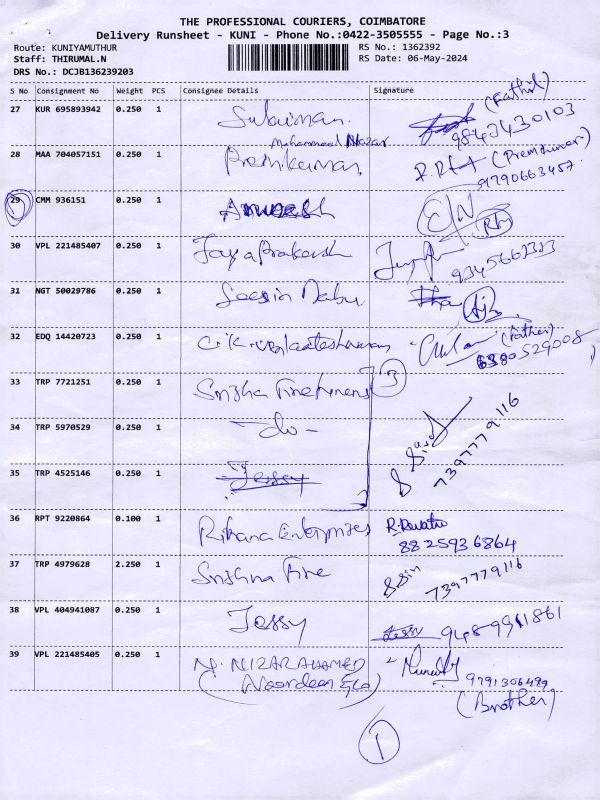 THE PROFESSIONAL COURIERS, COIMBATORE
Delivery Runsheet - KUNI - Phone No.:0422-3505555 - Page No.:3
Route: KUNIYAMUTHUR RS No.: 1362392
Staff: THIRUMAL.N RS Date: 06-May-2024
DRS No.: DCJB136239203
S No Consignment No Weight PCS Consignee Details Signature
27 KUR 695893942 0.250 1 Sulaiman (Fathil)
Mohammed Nazar
28 MAA 704057151 0.250 1 Premkumar (Premkumar)
9790663457
29 CMM 936151 0.250 1
30 VPL 221485407 0.250 1 Jayaprakash
31 NGT 50029786 0.250 1 Babu
32 EDQ 14420723 0.250 1 (Father)
6380529008
33 TRP 7721251 0.250 1 3
34 TRP 5970529 0.250 1 -do-
7397779116
35 TRP 4525146 0.250 1 Jessy
36 RPT 9220864 0.100 1 Rihana Enterprises R.Revathi
8825936864
37 TRP 4979628 2.250 1 Fine 7397779116
38 VPL 404941087 0.250 1 Jessy
39 VPL 221485405 0.250 1 M. NIZAR AHAMED
9791306499
(Brother)
1